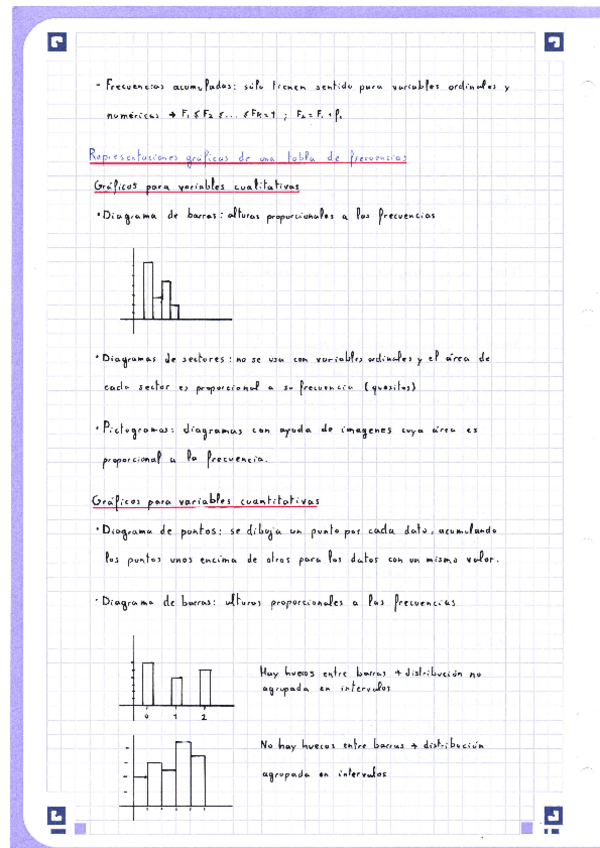 - Frecuencias acumuladas: sólo tienen sentido para variables ordinales y
numéricas → F₁ ≤ F₂ ≤ ... ≤ Fk=1 ; F₂ = F₁ + f₂
Representaciones gráficas de una tabla de frecuencias
Gráficos para variables cualitativas
• Diagrama de barras: alturas proporcionales a las frecuencias
• Diagramas de sectores: no se usa con variables ordinales y el área de
cada sector es proporcional a su frecuencia (quesitos)
• Pictogramas: diagramas con ayuda de imagenes cuya área es
proporcional a la frecuencia.
Gráficos para variables cuantitativas
• Diagrama de puntos: se dibuja un punto por cada dato, acumulando
los puntos unos encima de otros para los datos con un mismo valor.
• Diagrama de barras: alturas proporcionales a las frecuencias
Hay huecos entre barras → distribución no
agrupada en intervalos
0 1 2
No hay huecos entre barras → distribución
agrupada en intervalos